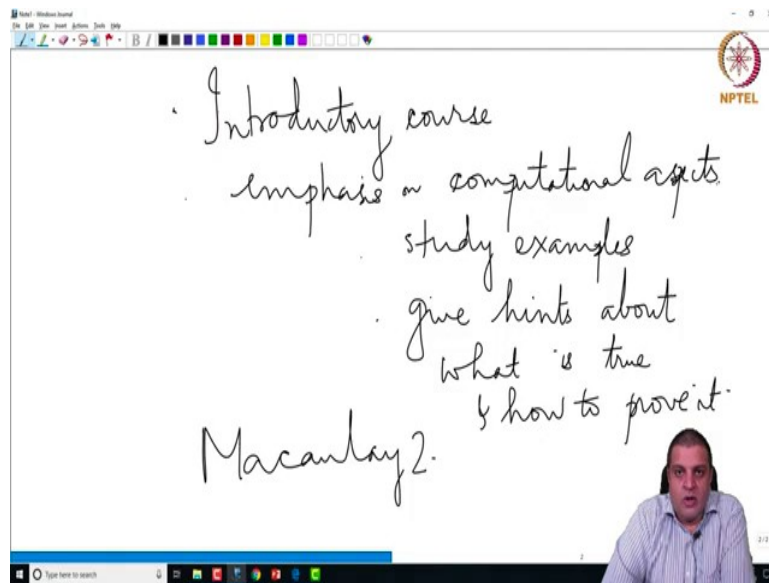 Note1 - Windows Journal
File Edit View Insert Actions Tools Help
NPTEL
Introductory course
emphasis on computational aspects
study examples
give hints about
what is true
& how to prove it.
Macaulay 2.
2
2/2
Type here to search